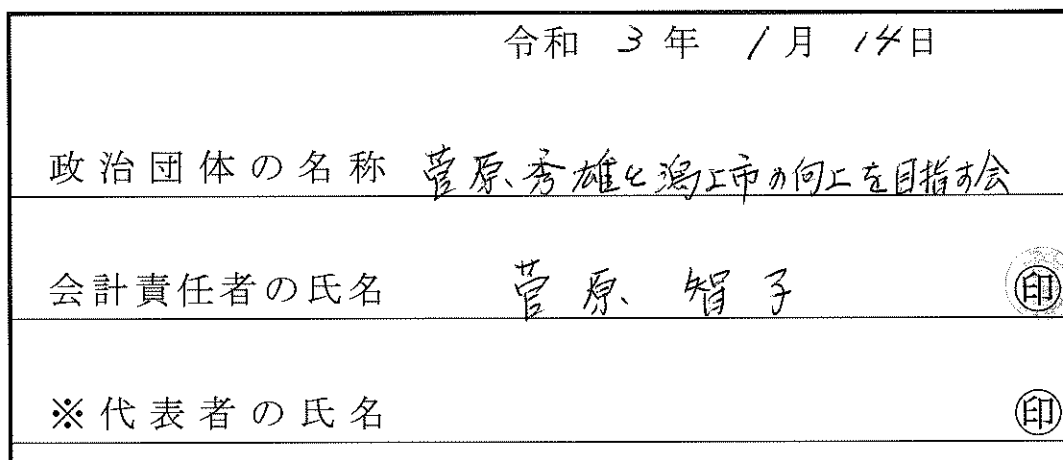 令和 3 年 1 月 14 日
政治団体の名称 菅原秀雄と潟上市の向上を目指す会
会計責任者の氏名 菅原 智子 ㊞
※代表者の氏名 ㊞